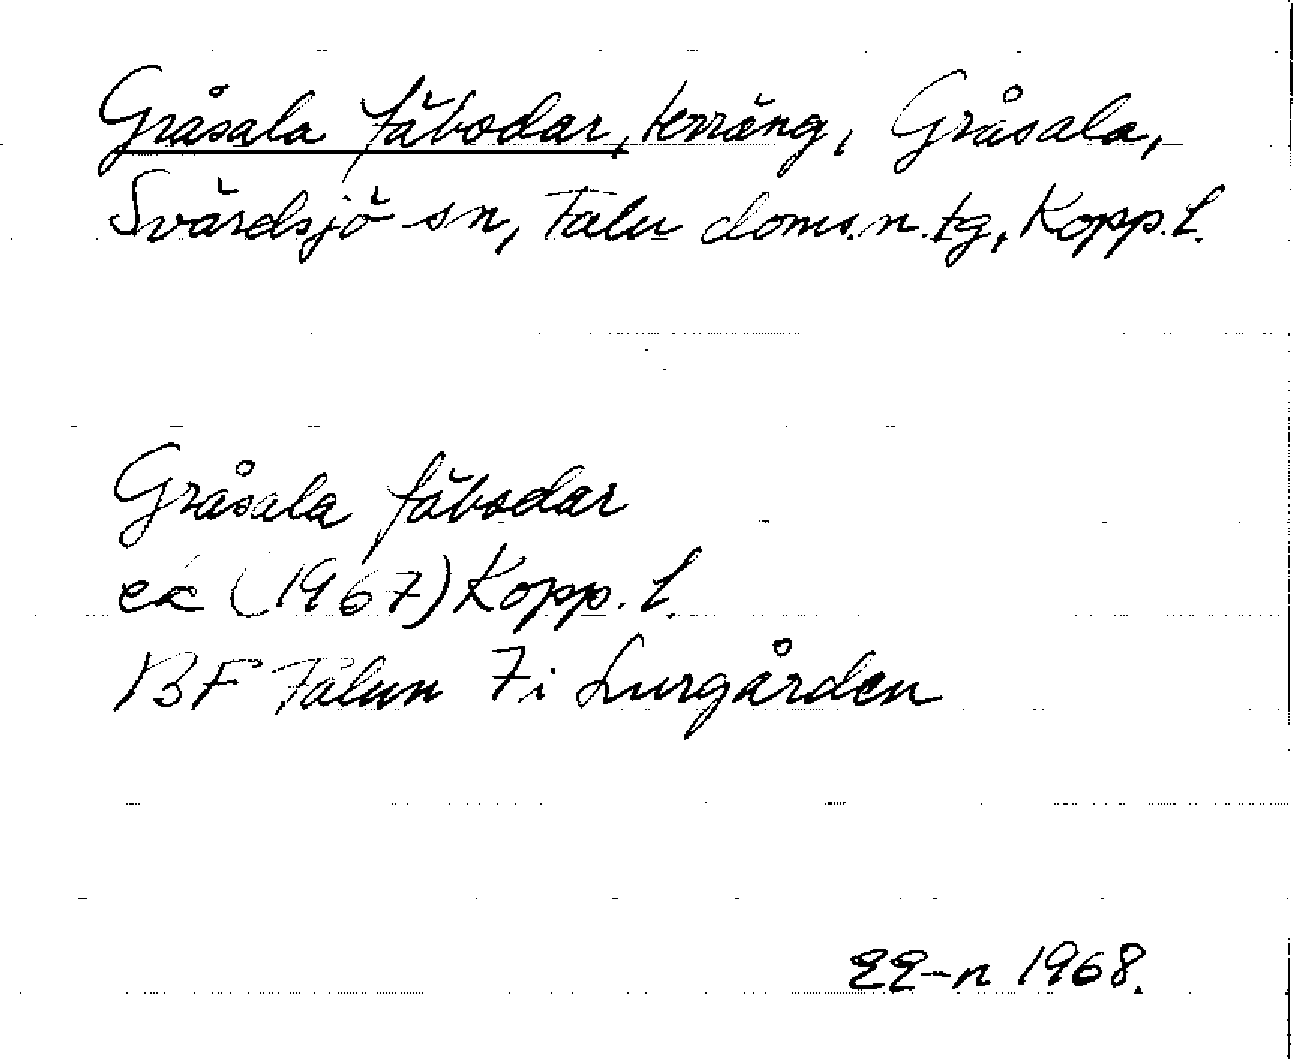 Gråsala fäbodar, terräng, Gråsala,
Svärdsjö sn, Falu doms.n.tg, Kopp.l.
Gråsala fäbodar
ek (1967) Kopp.l.
BF Falun 7i Lurgården
EE-n 1968.